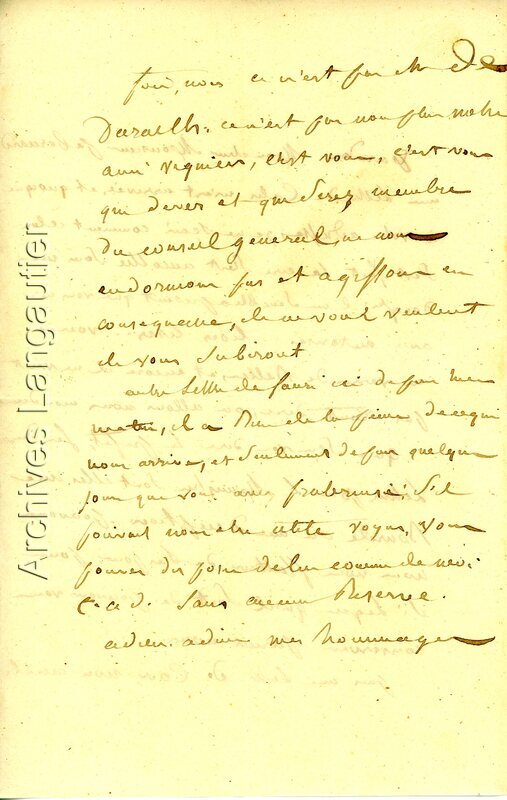 fois, nous ce n'est pas M. de
ce n'est pas non plus notre
ami vignier, c'est vous, c'est vous
qui devez et qui serez membre
du conseil general, ne nous
endormons pas et agissons en
consequence, ils ne vous veulent
ils vous subiront
autre lettre de fauri ici de par mer
il a de la peine de ce qui
nous arrive, et seulement de par quelques
jours que vous avez S'il
pouvait nous etre utile voyez, vous
pouvez disposer de lui comme de moi
C. a d. sans aucune Reserve.
adieu. adieu mes hommages
Archives Langautier